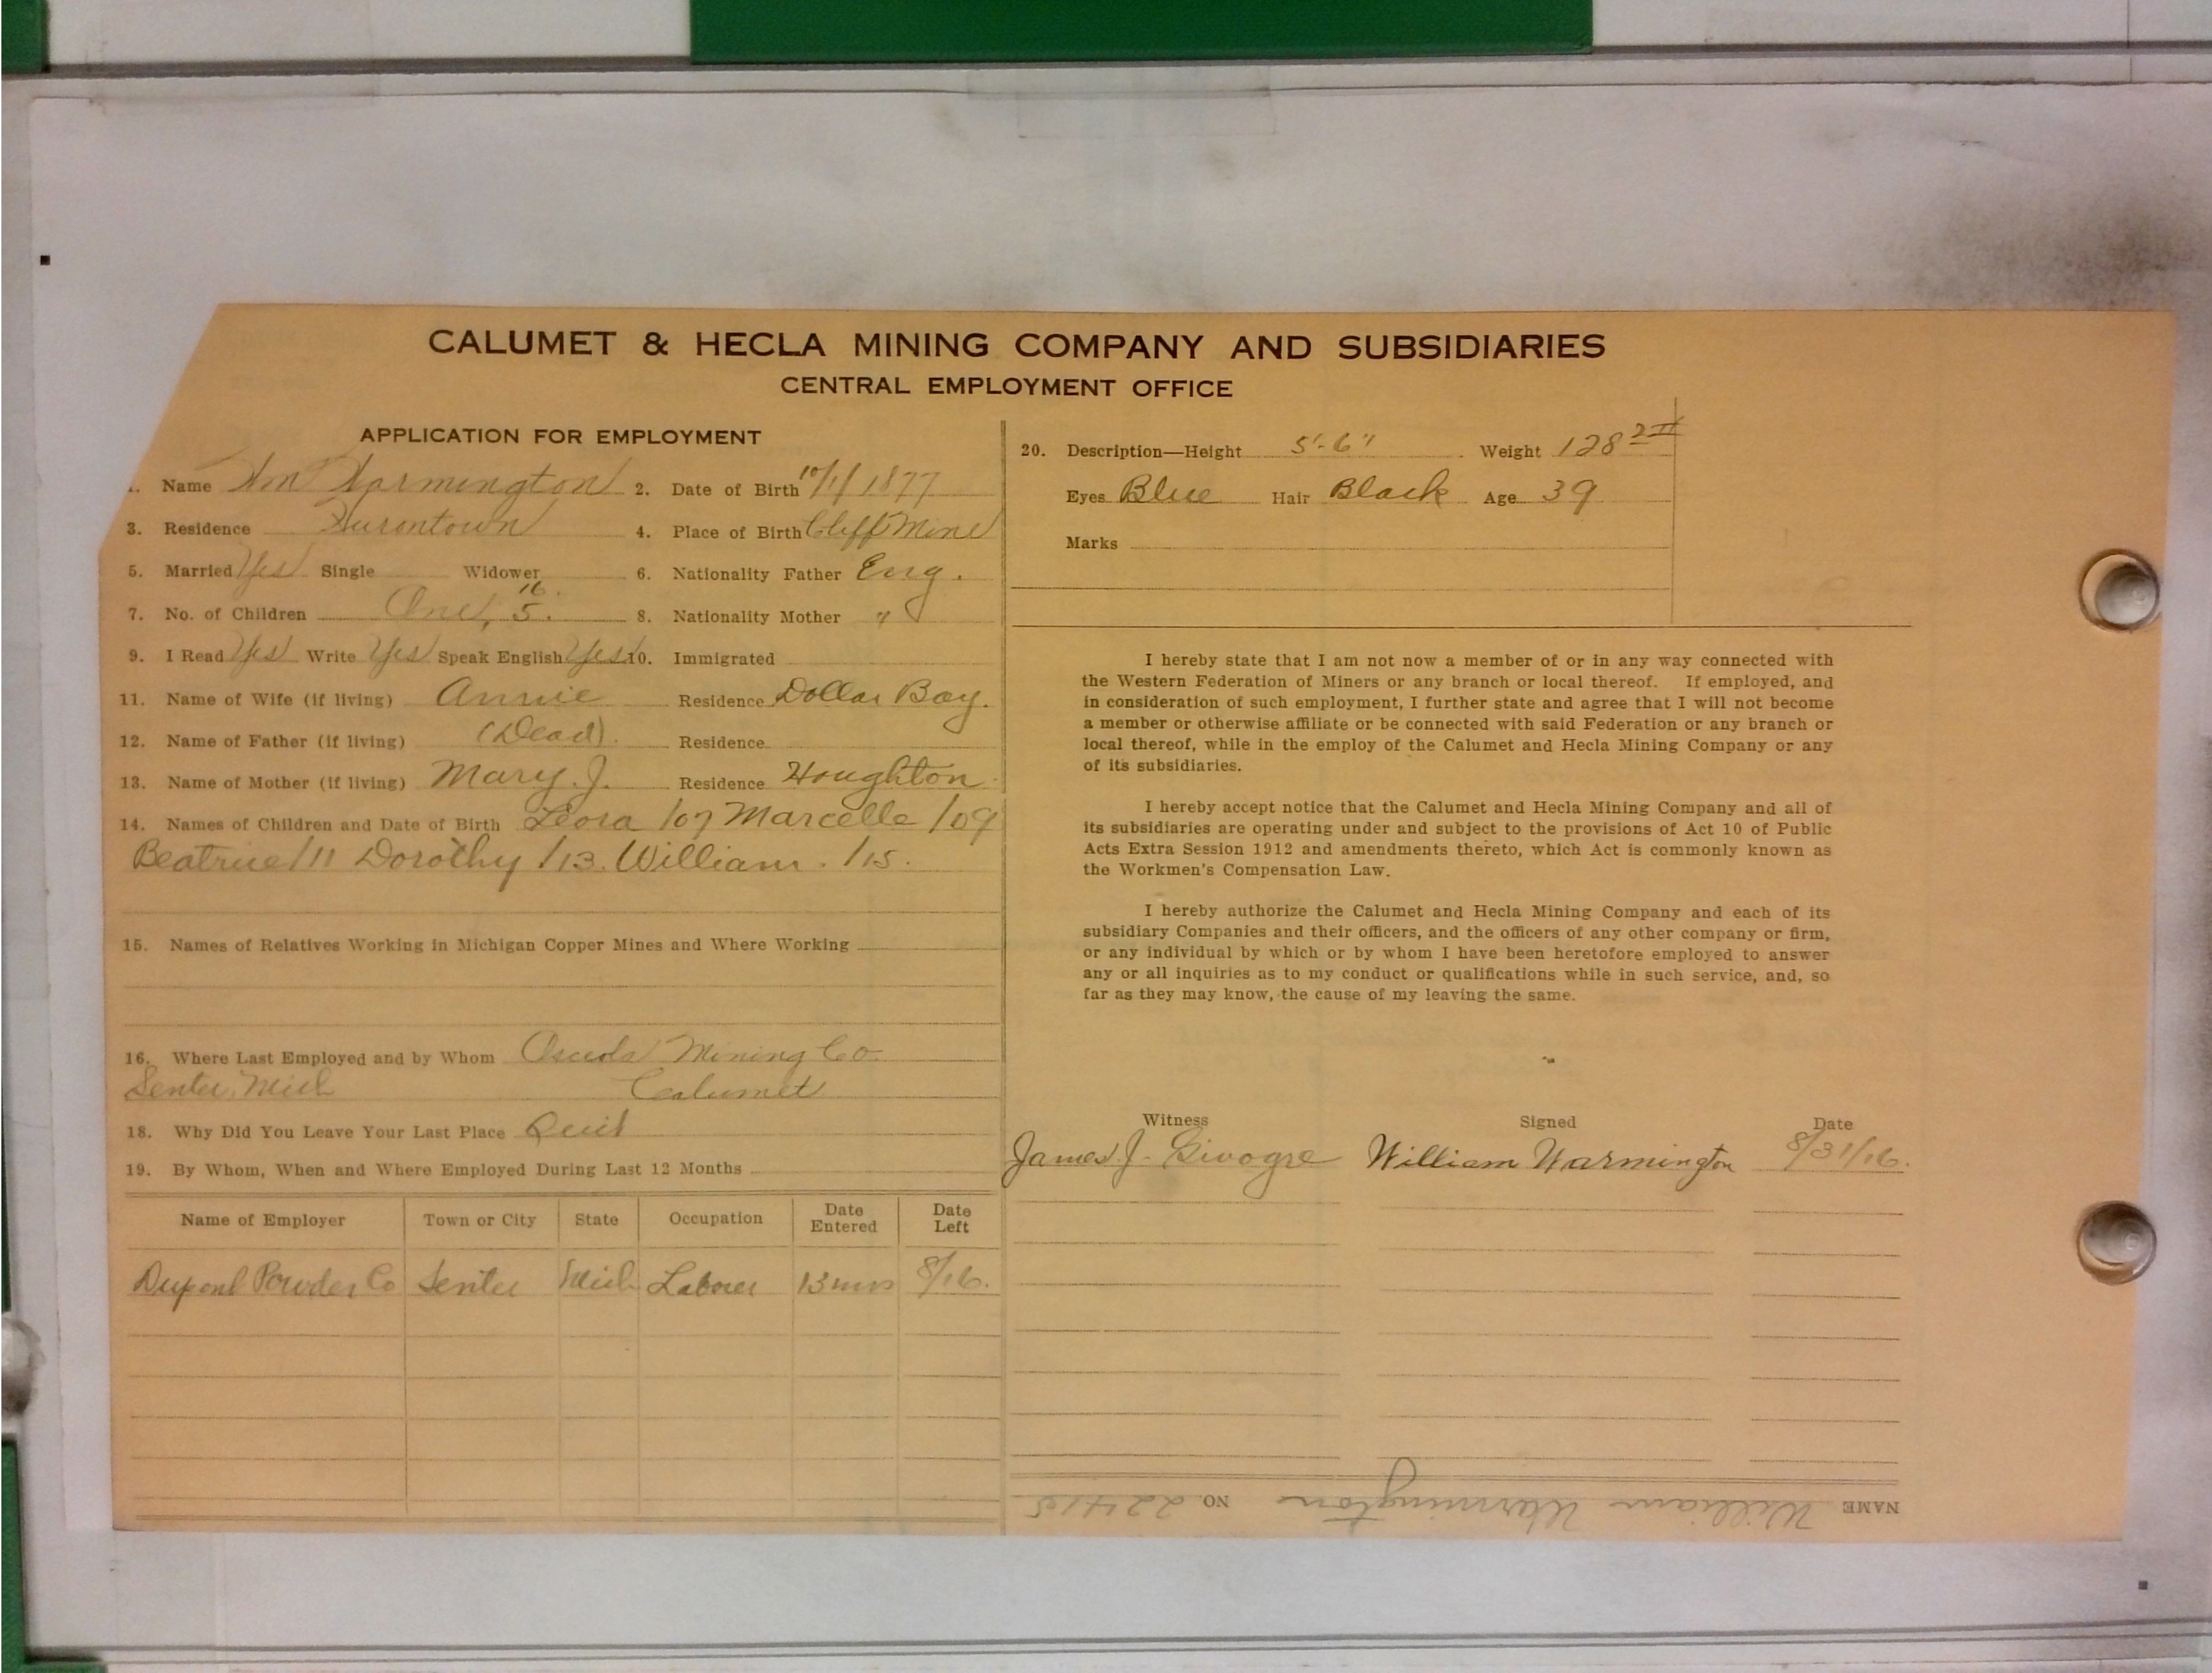 CALUMET & HECLA MINING COMPANY AND SUBSIDIARIES
CENTRAL EMPLOYMENT OFFICE
APPLICATION FOR EMPLOYMENT
Name Wm Warmington 2. Date of Birth 10/1/1877
3. Residence Hurontown 4. Place of Birth Cliff Mine
5. Married Yes Single Widower 6. Nationality Father Eng.
16.
7. No. of Children One, 5. 8. Nationality Mother "
9. I Read Yes Write Yes Speak English Yes 10. Immigrated
11. Name of Wife (if living) Annie Residence Dollar Bay.
12. Name of Father (if living) (Dead). Residence
13. Name of Mother (if living) Mary J. Residence Houghton
14. Names of Children and Date of Birth Leora /07 Marcelle /09
Beatrice /11 Dorothy /13. William. /15.
15. Names of Relatives Working in Michigan Copper Mines and Where Working
16. Where Last Employed and by Whom Osceola Mining Co
Senter, Mich Calumet
18. Why Did You Leave Your Last Place Quit
19. By Whom, When and Where Employed During Last 12 Months
Name of Employer Town or City State Occupation Date Entered Date Left
Dupont Powder Co Senter Mich Laborer 13 mos 8/16.
20. Description—Height 5'-6" Weight 128
Eyes Blue Hair Black Age 39
Marks
I hereby state that I am not now a member of or in any way connected with
the Western Federation of Miners or any branch or local thereof. If employed, and
in consideration of such employment, I further state and agree that I will not become
a member or otherwise affiliate or be connected with said Federation or any branch or
local thereof, while in the employ of the Calumet and Hecla Mining Company or any
of its subsidiaries.
I hereby accept notice that the Calumet and Hecla Mining Company and all of
its subsidiaries are operating under and subject to the provisions of Act 10 of Public
Acts Extra Session 1912 and amendments thereto, which Act is commonly known as
the Workmen's Compensation Law.
I hereby authorize the Calumet and Hecla Mining Company and each of its
subsidiary Companies and their officers, and the officers of any other company or firm,
or any individual by which or by whom I have been heretofore employed to answer
any or all inquiries as to my conduct or qualifications while in such service, and, so
far as they may know, the cause of my leaving the same.
Witness Signed Date
James J. William Warmington 8/31/16.
NAME William Warmington NO. 22415